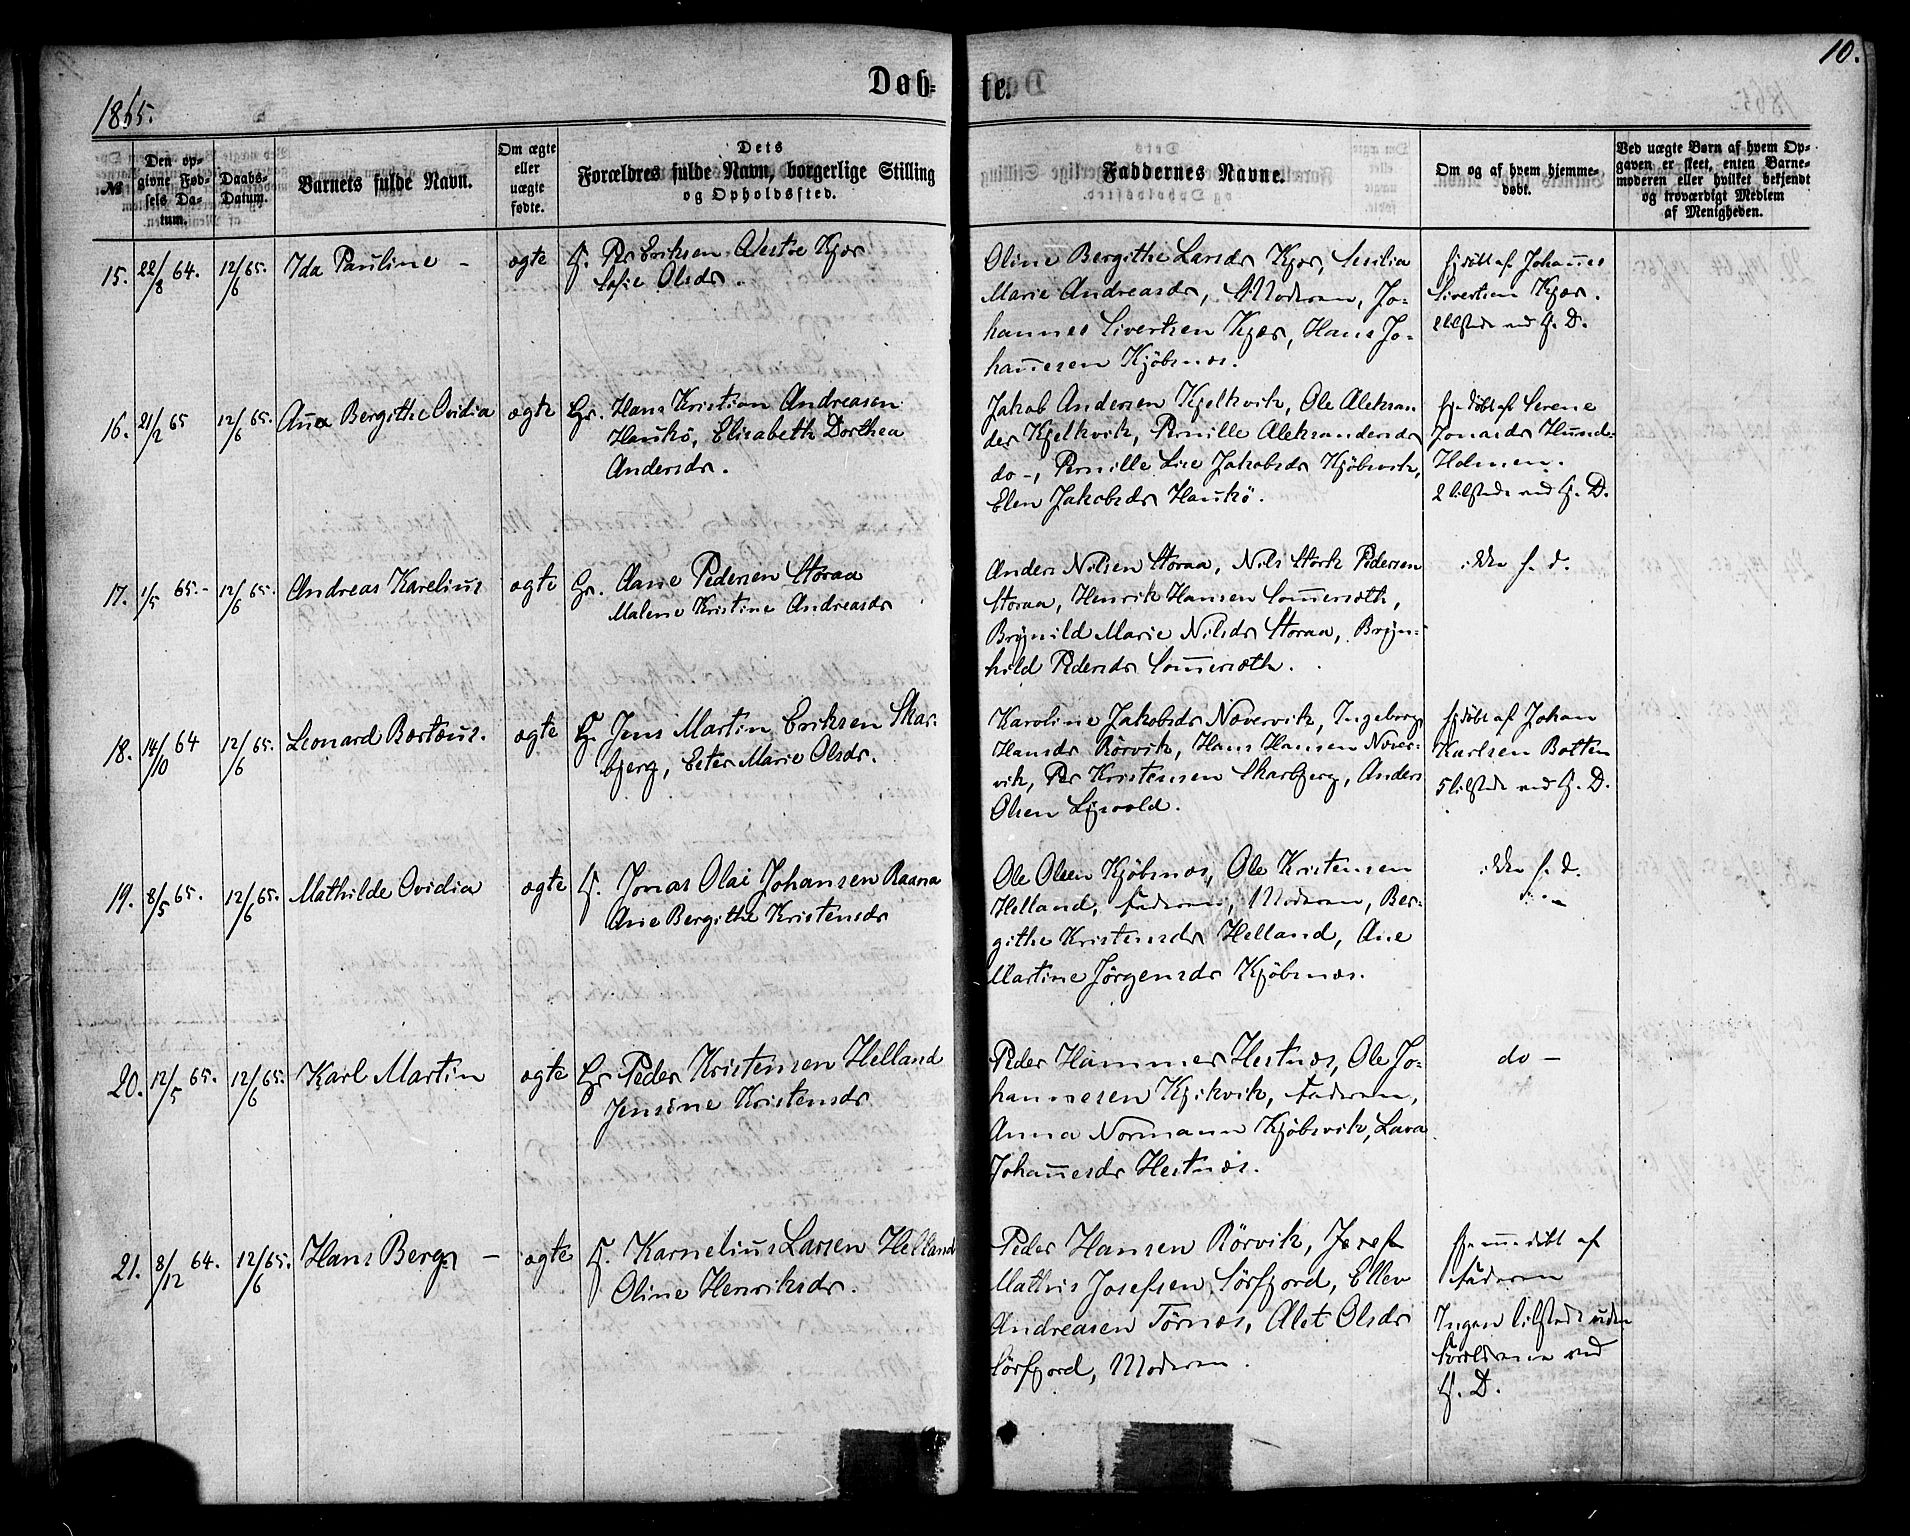 10.
1865.
Døb-
te.
№
Den op-
givne Fød-
sels Da-
tum.
Daabs-
Datum.
Barnets fulde Navn.
Om ægte
eller
uægte
fødte.
Dets
Forældres fulde Navn, borgerlige Stilling
og Opholdssted.
Faddernes Navne.
Om og af hvem hjemme-
døbt.
Ved uægte Børn af hvem Op-
gaven er skeet, enten Barne-
moderen eller hvilket bekjendt
og troværdigt Medlem
af Menigheden.
15. 22/8 64. 12/6 65. Ida Pauline – ægte
Per Eriksen Vestre Kjær
Sofie Olsdr.
Oline Bergithe Larsdr Kjær, Sesilia
Marie Andreasdr, Moderen, Jo-
hannes Sivertsen Kjær, Hans Jo-
hannesen Kjöbsnæs.
hjdöbt af Johannes
Sivertsen Kjær.
2 tilstede ved hj. D.
16. 21/2 65 12/6 65. Anna Bergithe Ovidia ægte Gr. Hans Kristian Andreasen
Haukö, Elisabeth Dorthea
Andersdr.
Jakob Andersen Kjelkvik, Ole Aleksan
der Kjelkvik, Pernille Aleksandersdr
do -, Pernille Lise Jakobsdr Kjöbsvik,
Elen Jakobsdr Haukö.
hjdöbt af Serene
Jonasdr Hund-
Holmen.
2 tilstede ved hj. D.
17. 1/5 65.- 12/6 65. Andreas Karelius ægte Gr. Aane Pedersen Storaa
Malene Kristine Andreasdr
Anders Nilsen Storaa, Nils Stork Pedersen
Storaa, Henrik Hansen Sommersæth,
Brynild Marie Nilsdr Storaa, Bryn-
hild Pedersdr Sommersæth.
ikke h. d.
18. 14/10 64 12/6 65. Leonard Bertæus. ægte Jens Martin Eriksen Skar-
bjerg, Ester Marie Olsdr.
Karoline Jakobsdr Nævervik, Ingeborg
Hansdr Rörvik, Hans Hansen Næver-
vik, Per Kristensen Skarbjerg, Anders
Olsen
hjdöbt af Johan
Karlsen Botten
5 tilstede ved hj. D.
19. 8/5 65. 12/6 65. Mathilde Ovidia ægte Jonas Olai Johansen Raana
Ane Bergithe Kristensdr
Ole Olsen Kjöbsnæs, Ole Kristensen
Helland, Faderen, Moderen, Ber-
githe Kristensdr Helland, Ane
Martine Jörgensdr Kjöbsnæs.
ikke h. d.
20. 12/5 65. 12/6 65. Karl Martin ægte Gr Peder Kristensen Helland
Jensine Kristensdr
Peder Hammer Hestnæs, Ole Jo-
hannesen Kjikvik, Faderen,
Anna Normann Kjöbsvik, Lava
Johannesdr Hestnæs.
do –
21. 8/12 64. 12/6 65. Hans Berg – ægte Karnelius Larsen Helland
Oline Henriksdr.
Peder Hansen Rörvik, Josef
Mathis Josefsen Sörfjord, Ellev
Andreasen Törnæs, Alet Olsdr
Sörfjord, Moderen.
hjemmedöbt af
Faderen
Ingen tilstede uden
Forældrene ved
hj. D.